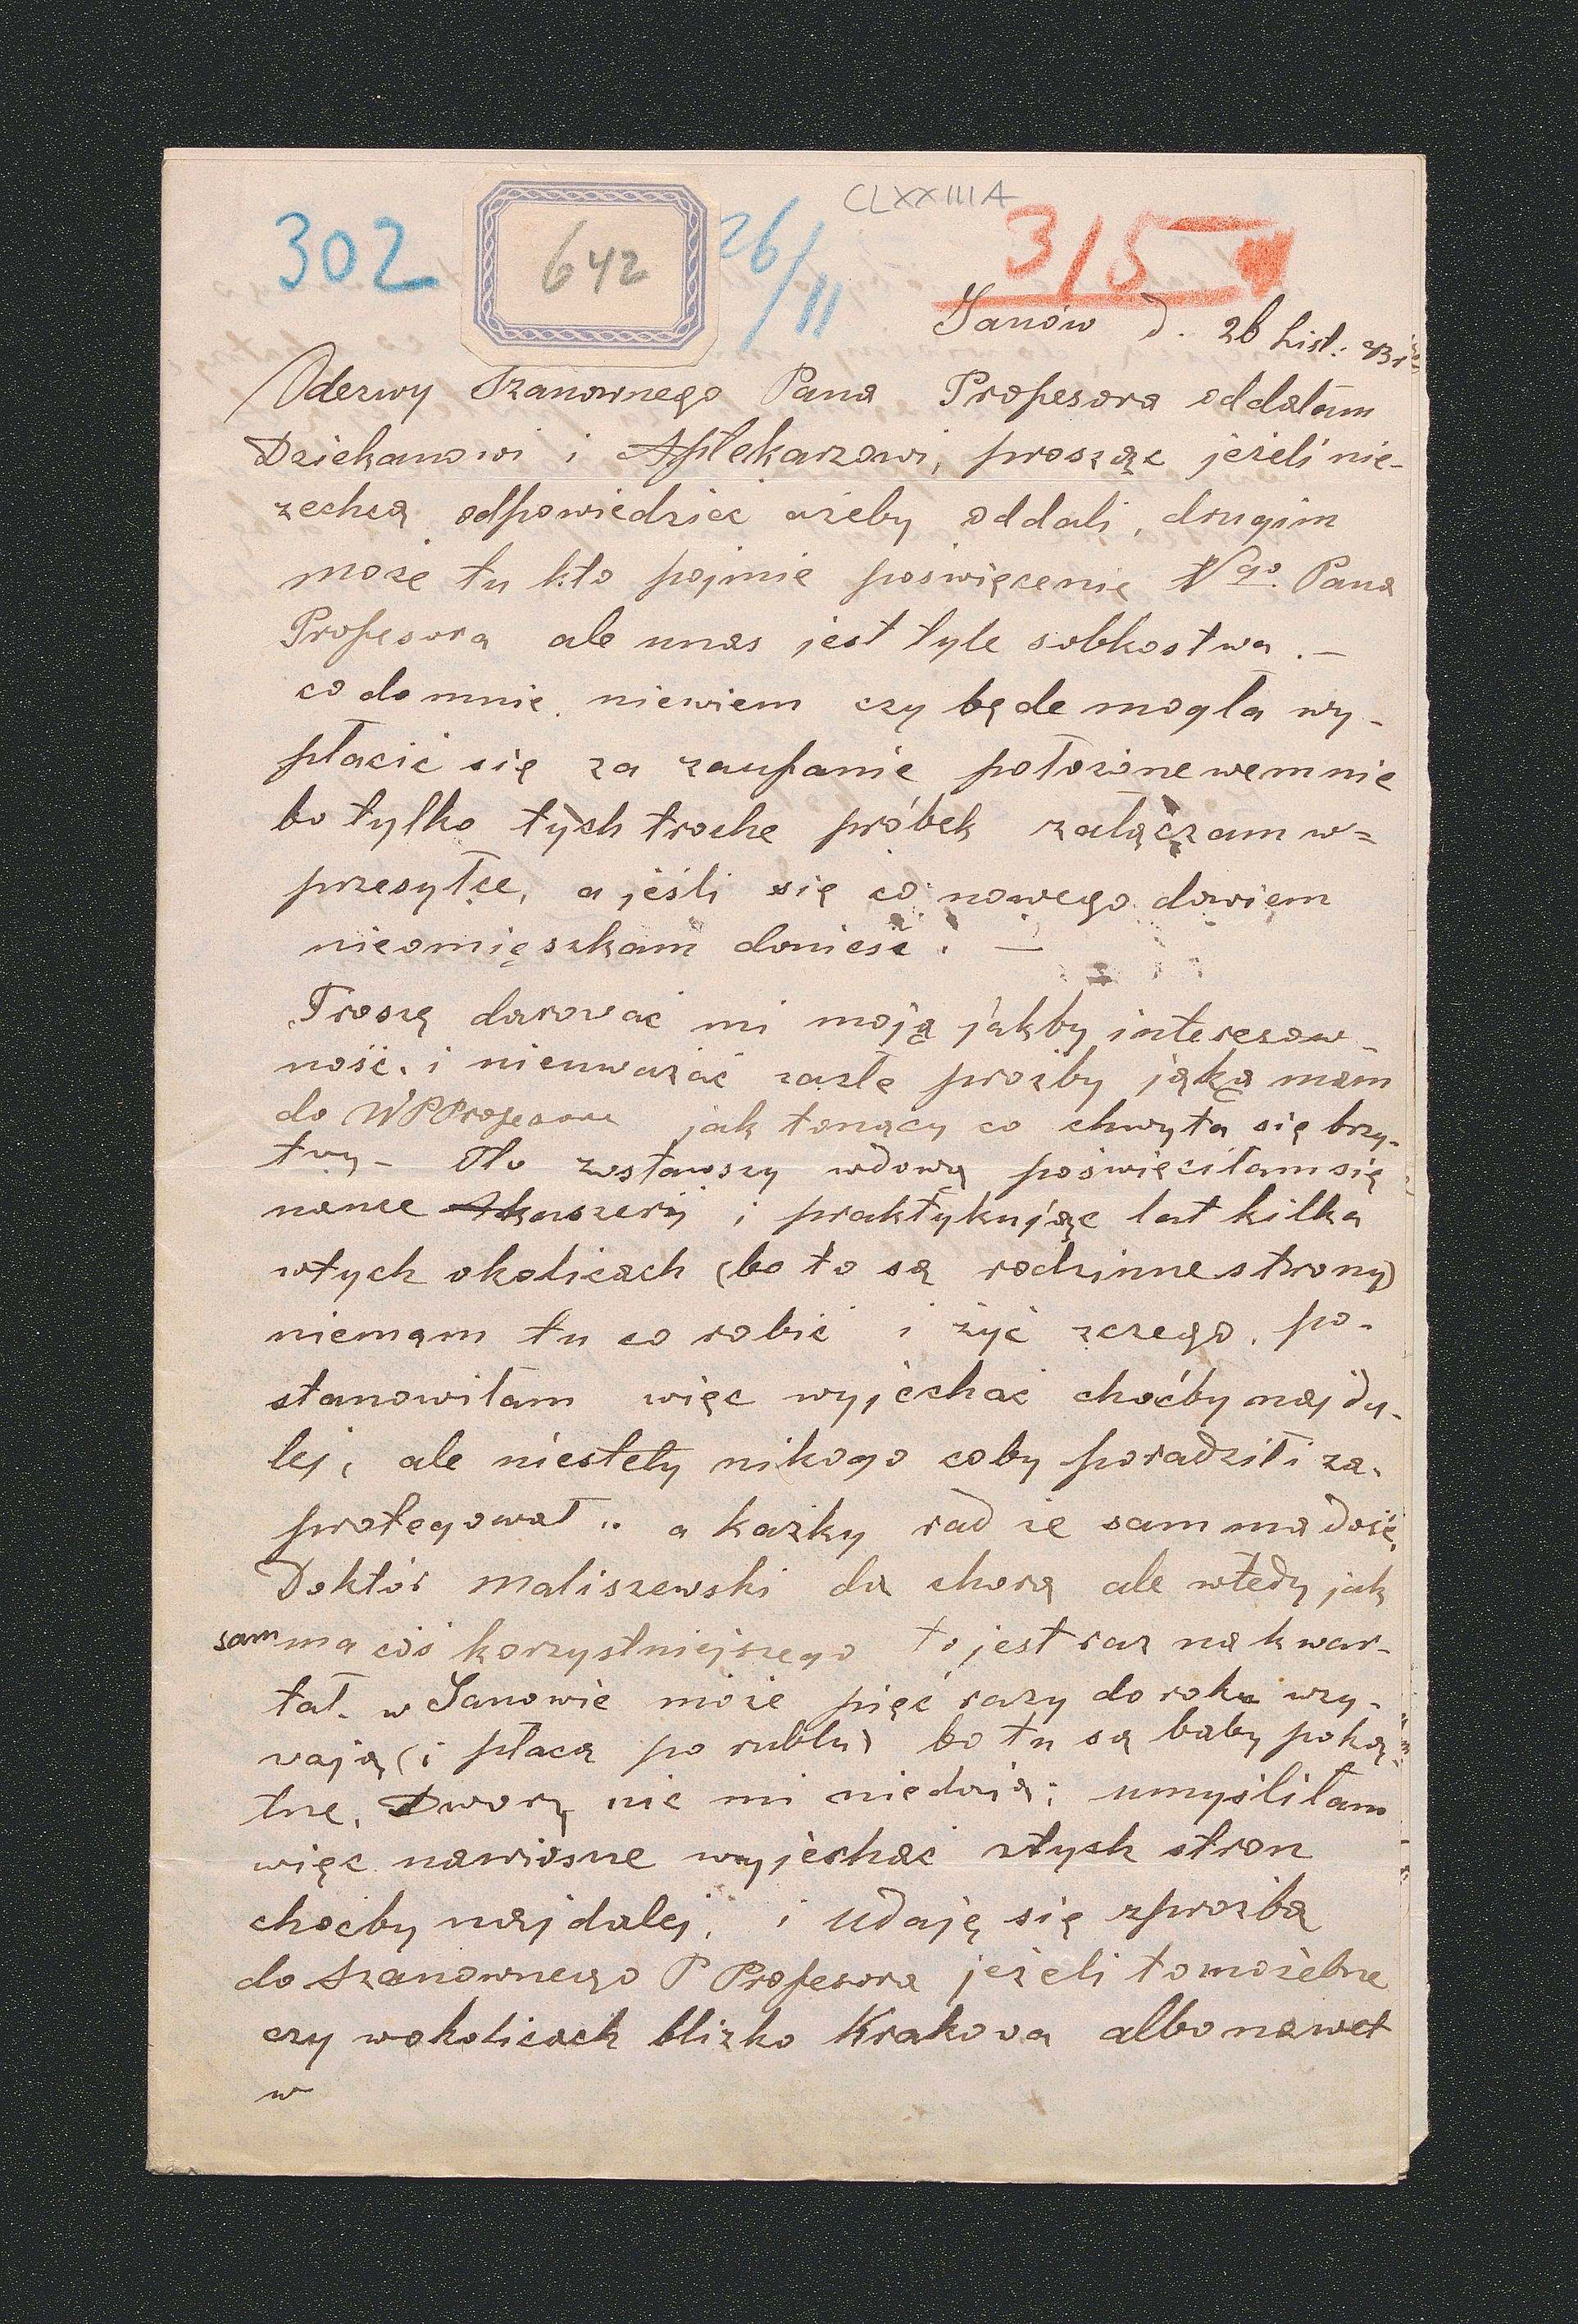 CLXXIIIA
302
642
26/11
315
Janów d. 26 List:
Odezwy Szanownego Pana Profesora oddałam
Dziekanowi i Aptekarzowi, prosząc jeżeli nie-
zechcą odpowiedzieć ażeby oddali, drugim
może tu kto pojmie poświęcenie Wgo. Pana
Profesora ale unas jest tyle sobkostwa. —
co do mnie, niewiem czy będe mogła wy-
płacić się za zaufanie położone wemnie
bo tylko tych troche próbek załączam w=
przesyłce, a jeśli się co nowego dowiem
nieomięszkam donieść. —
Proszę darować mi moją jakby interesow-
ność. i nieuważać zazłe prożby jąką mam
do WPProfesora jak tonący co chwyta się brzy-
twy - Oto zostawszy wdową poświęciłam się
nauce Akuszerij i praktykując lat kilka
wtych okolicach (bo to są rodzinne strony)
niemam tu co robić i żyć zczego, po-
stanowiłam więc wyjechać choćby najda-
lej, ale niestety nikogo coby poradził i za-
protegował .. a kazky rad że sam ma dość.
Doktór Maliszewski da chorą ale wtedy jak
sam ma coś korzystniejszego to jest raz na kwar-
tał. w Janowie może pięć razy do roku wzy-
wają (i płacą po rublu) bo tu są baby poką-
tne. Dwory nic mi niedają; umyśliłam
więc nawiosne wyjechać ztych stron
choćby najdalej, i udaję się zprożbą
do Szanownego P Profesora jeżeli to możebne
czy wokolicach blizko Krakowa albo nawet
w